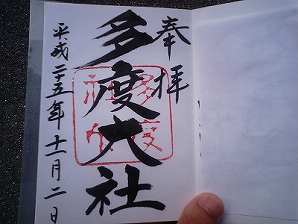 奉拝
多度大社
平成二十五年十一月二日